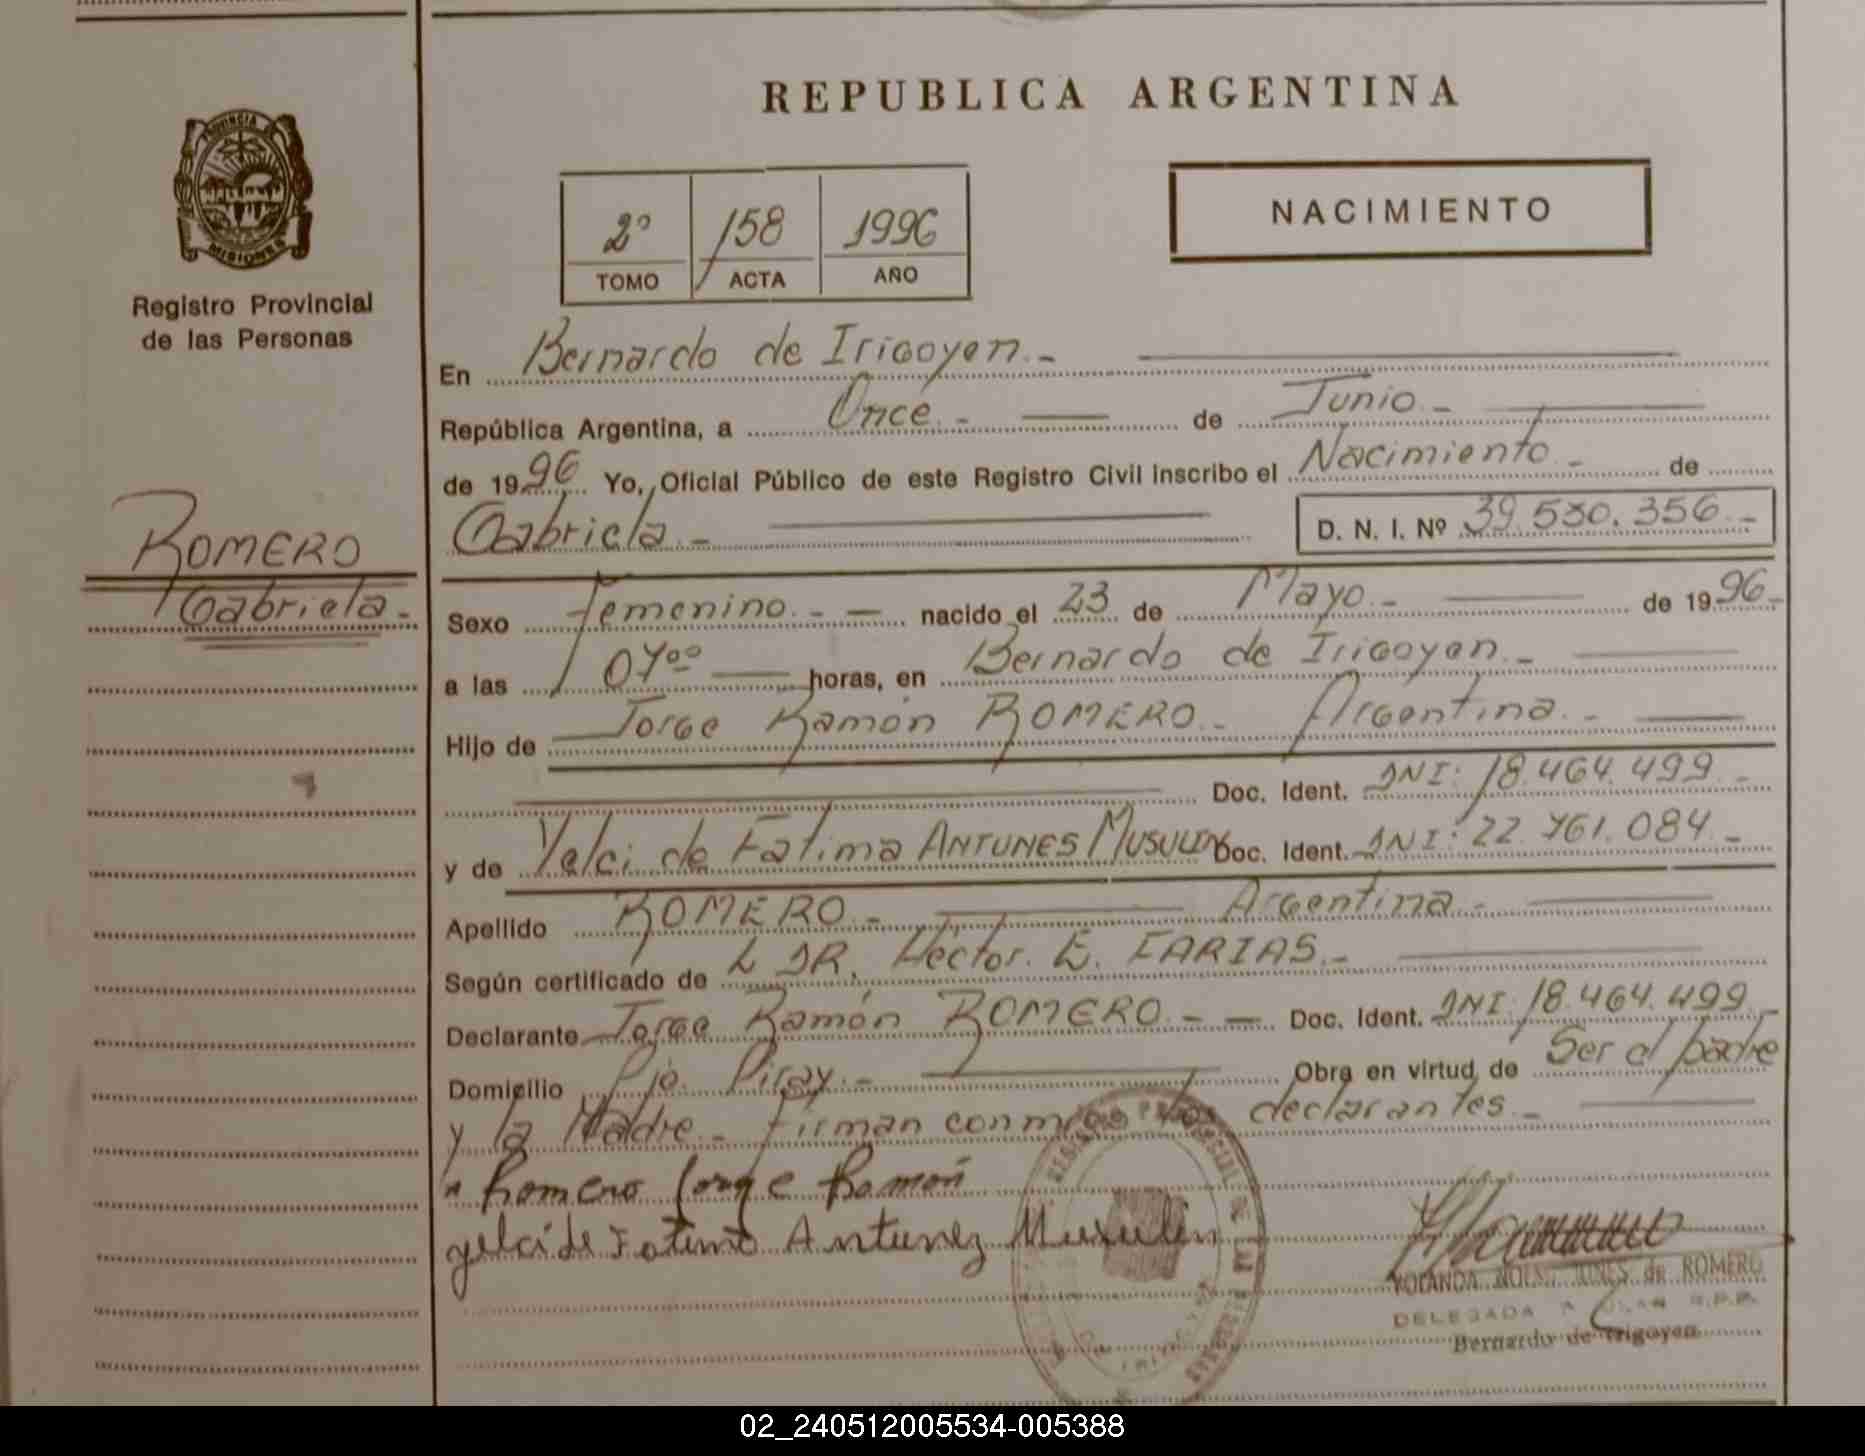 REPUBLICA ARGENTINA
PROVINCIA DE
MISIONES
Registro Provincial
de las Personas
2º 158 1996
TOMO ACTA AÑO
NACIMIENTO
En Bernardo de Irigoyen.-
República Argentina, a Once.- de Junio.-
de 1996 Yo, Oficial Público de este Registro Civil inscribo el Nacimiento.- de
Gabriela.- D. N. I. Nº 39.530.356.-
ROMERO
Gabriela.-
Sexo femenino.- - nacido el 23 de Mayo.- de 1996.-
a las 07ºº horas, en Bernardo de Irigoyen.-
Hijo de Jorge Ramón ROMERO.- Argentina.-
Doc. Ident. DNI: 18.464.499.-
y de Yelci de Fatima ANTUNES MUSULIN Doc. Ident. DNI: 22.761.084.-
Apellido ROMERO.- Argentina.-
Según certificado de L DR. Hector. E. FARIAS.-
Declarante Jorge Ramón ROMERO.- - Doc. Ident. DNI 18.464.499.-
Domicilio Pjo. Piray.- Obra en virtud de Ser el padre
y la Madre.- Firman conmigo los declarantes.-
Romero Jorge Ramón
yelci de Fatima Antunez Musulin
REGISTRO PROVINCIAL DE LAS PERSONAS
YOLANDA de ROMERO
DELEGADA R.P.P.
Bernardo de Irigoyen
02_240512005534-005388